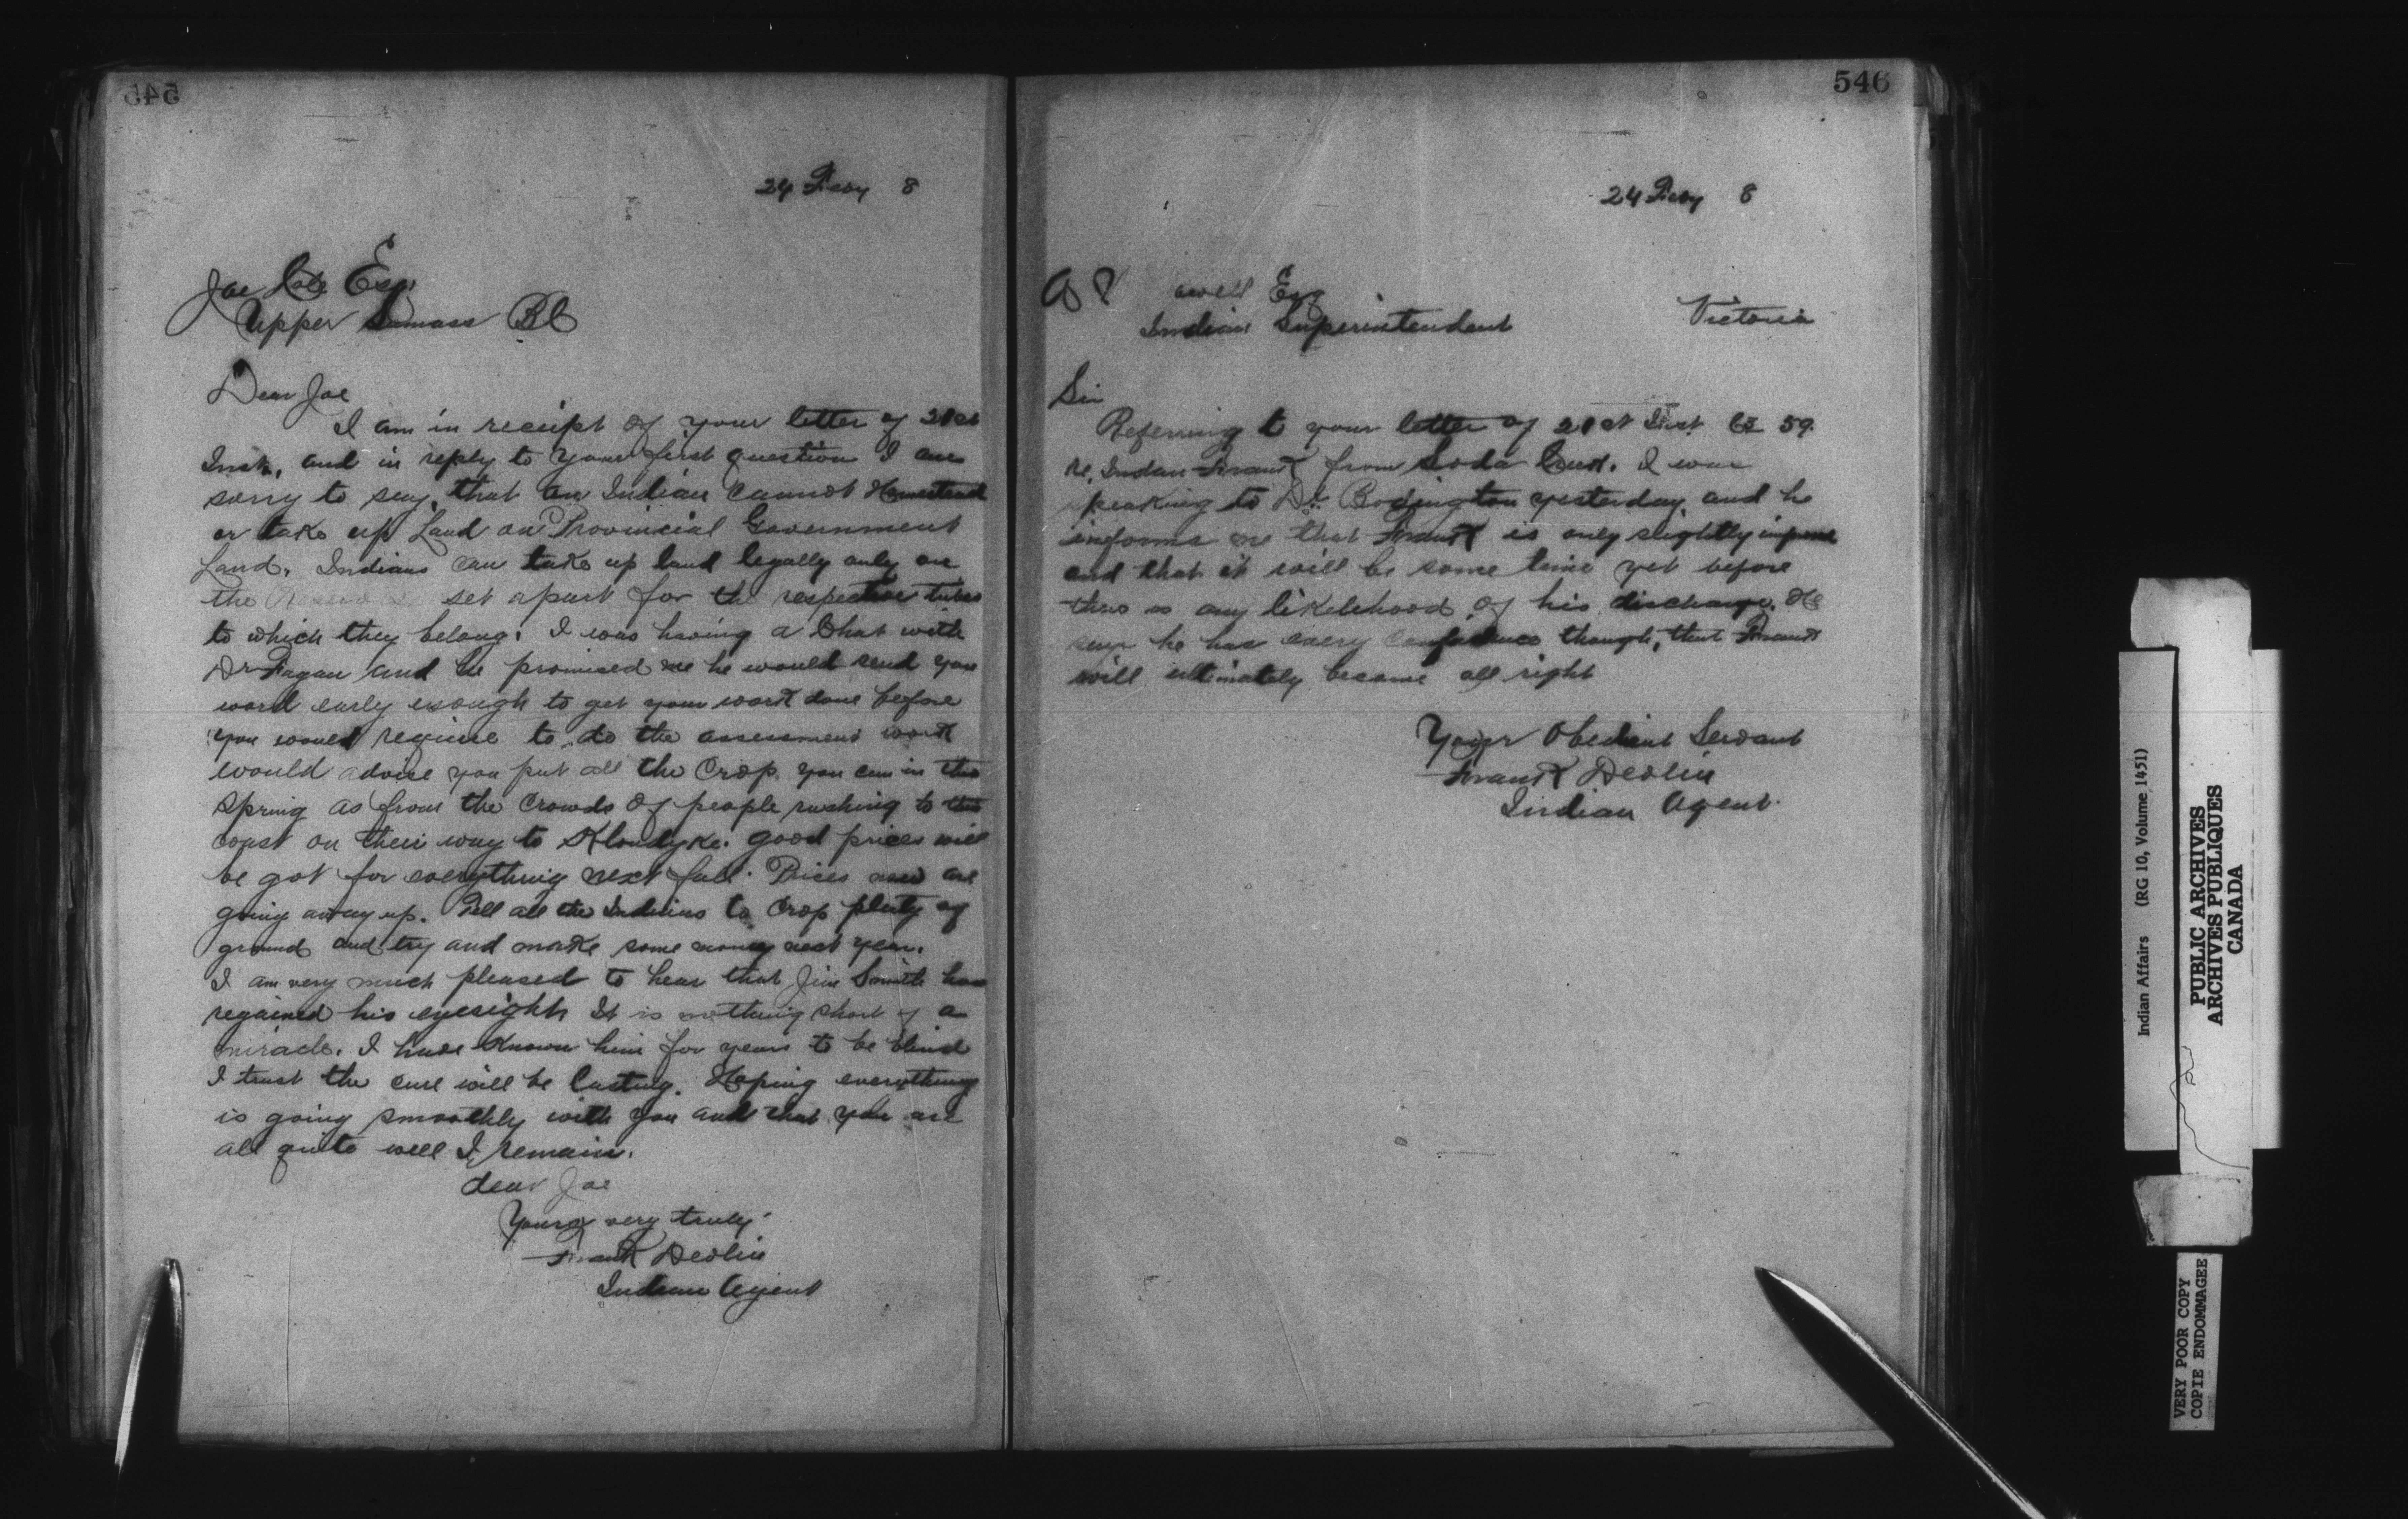 545
24 Feby 8
Joe Esq.
Upper Sumass BC
Dear Joe
I am in receipt of your letter of 21st
Inst, and in reply to your first question I am
sorry to say, that an Indian cannot Homestead
or take up Land on Provincial Government
Land. Indians can take up land legally only on
the set apart for the respective tribes
to which they belong. I was having a Chat with
Dr Fagan and he promised me he would send you
word early enough to get your work done before
you would require to do the assessment work
would advise you put all the Crop you can in this
Spring as from the Crowds of people rushing to this
coast on their way to Klondyke. good prices will
be got for everything next fall. Prices now are
going away up. Tell all the Indians to Crop plenty of
ground and try and make some money next year.
I am very much pleased to hear that Jim Smith has
regained his eyesight It is nothing short of a
miracle. I have Known him for years to be blind
I trust the cure will be lasting. Hoping everything
is going smoothly with you and that you are
all quite well I remain.
dear Joe
Yours very truly
Frank Devlin
Indian Agent
546
24 Feby 8
A owell Esq
Indian Superintendent Victoria
Sir
Referring to your letter of 21st Inst 59
re, Indian Frank from Soda Creek. I was
speaking to Dr Bodington yesterday, and he
informs me that Frank is only slightly improved
and that it will be some time yet before
there is any likelehood of his discharge. He
says he has every Confidence though, that Frank
will ultimately become all right
Your Obedient Servant
Frank Devlin
Indian Agent.
Indian Affairs (RG 10, Volume 1451)
PUBLIC ARCHIVES
ARCHIVES PUBLIQUES
CANADA
VERY POOR COPY
COPIE ENDOMMAGEE